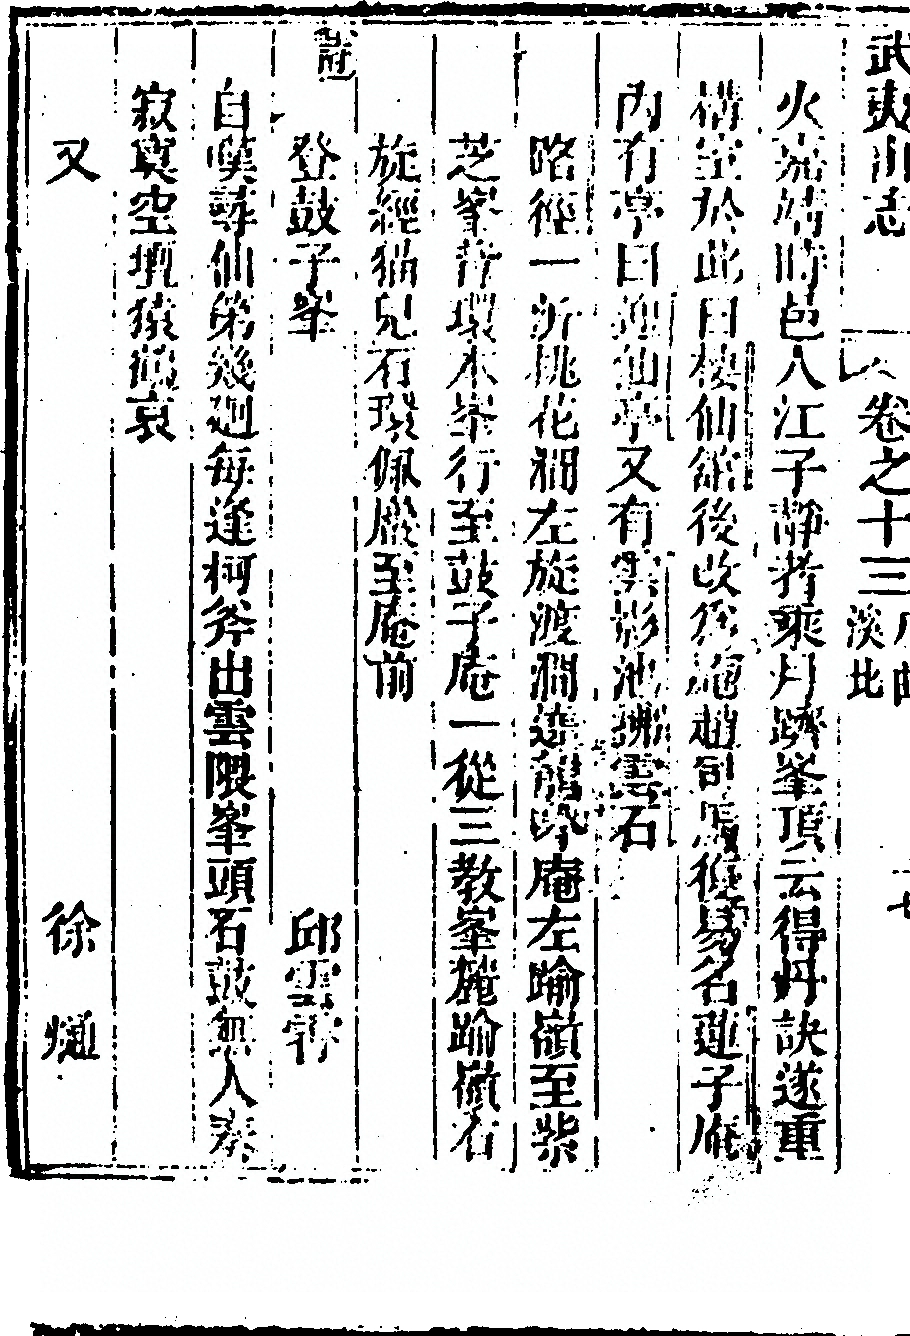 武夷山志 卷之十三 溪北
火嘉靖時邑人江子靜者乘月躋峯頂云得丹訣遂重
構室於此曰棲仙館後改爲庵趙司馬復易名蓮子庵
內有亭曰迎仙亭又有雲影池拂雲石
略徑一泝桃花澗左旋渡澗遶鶴鳴庵左踰嶺至紫
芝峯背環本峯行至鼓子庵一從三教峯麓踰嶺右
旋經猫兒石環佩巖至庵前
詩
登鼓子峯 邱雲霄
自嘆尋仙第幾廻每逢柯斧出雲隈峯頭石鼓無人奏
寂寞空壇猿鶴哀
又 徐𤊹